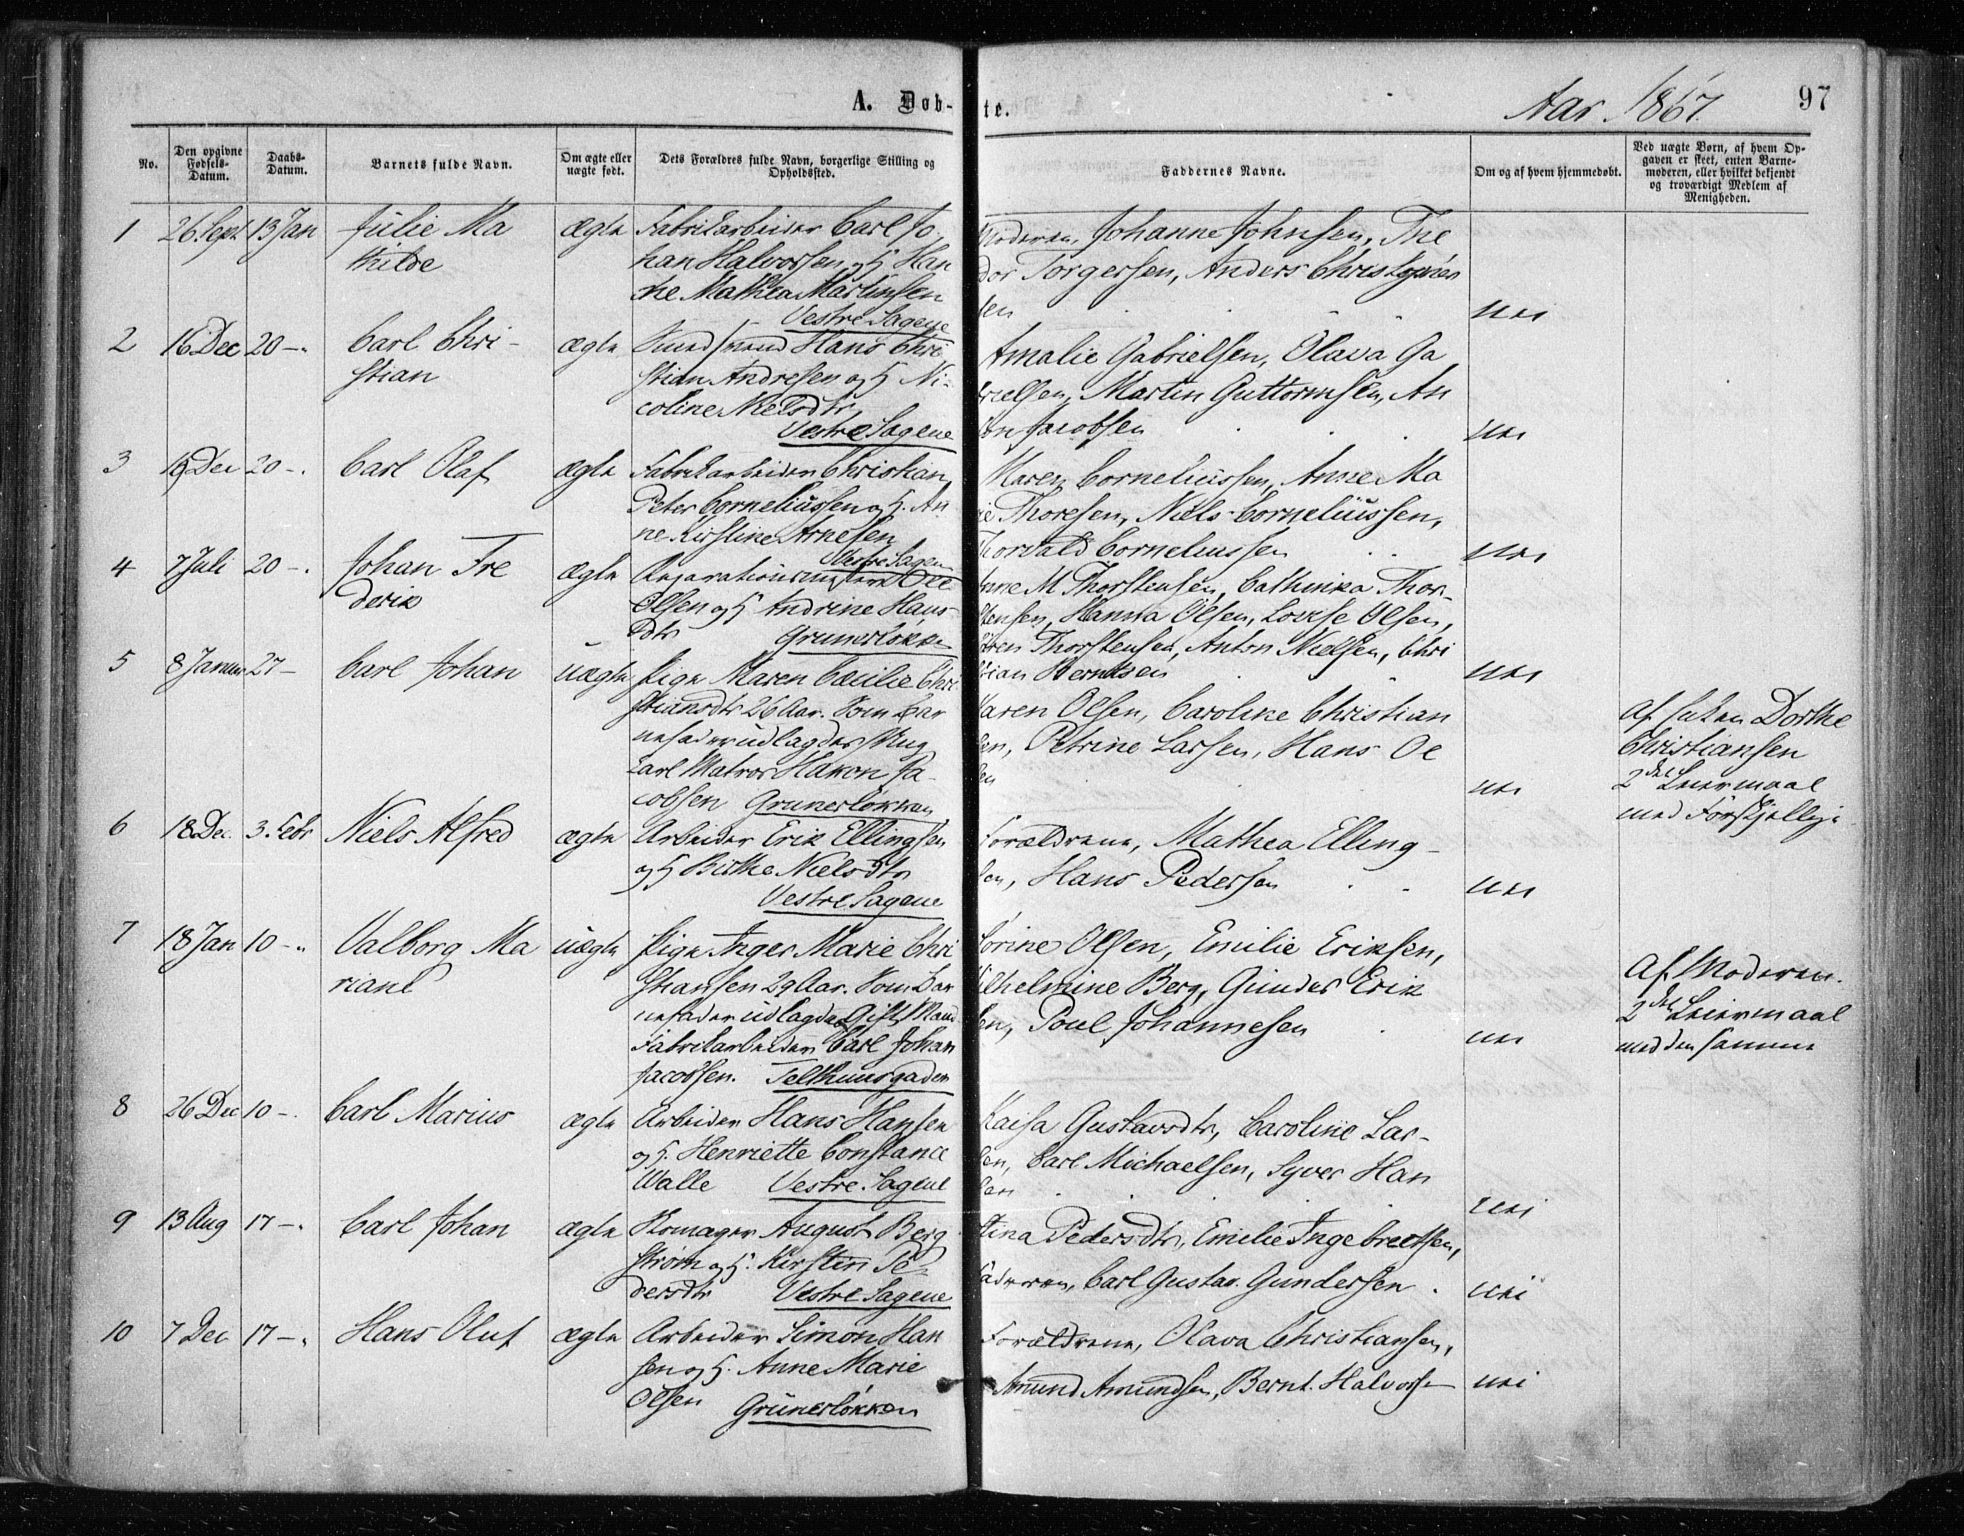 A. Døb-
te.
Aar 1867.
97
No.
Den opgivne Fødsels-Datum.
Daabs-Datum.
Barnets fulde Navn.
Om ægte eller uægte født.
Dets Forældres fulde Navn, borgerlige Stilling og Opholdssted.
Faddernes Navne.
Om og af hvem hjemmedøbt.
Ved uægte Børn, af hvem Opgaven er skeet, enten Barnemoderen, eller hvilket bekjendt og troværdigt Medlem af Menigheden.
1 26 Sept 13 Jan Julie Ma
thilde
ægte
Fabrikarbeider Carl Jo-
han Halvorsen og H. Han
ne Mathea Martinsen
Vestre Sagene
Moderen, Johanne Johnsen, The
dor Torgersen, Anders
sen
nei
2 16 Dec 20 -
Carl Chri-
stian
ægte
Hans Chri
stian Andresen og H. Ni-
coline Nielsdtr,
Vestre Sagene
Amalie Gabrielsen, Olava Ga
brielsen, Martin Guttormsen, An
ton Jacobsen
nei
3 19 Dec 20 -
Carl Olaf
ægte
Fabrikarbeider Christian
Peter Corneliussen og H. An
ne Kirstine Arnesen
Vestre Sagen
Maren Corneliussen, Anne Ma
rie Thoresen, Niels Corneliussen,
Thorvald Corneliussen
nei
4 7 Juli 20 -
Johan Fre
derik
ægte
Ole
Olsen og H. Andrine Hans-
dtr Grunerløkken
Anne M Thorstensen, Cathinka Thor-
stensen, Hanna Olsen, Lovise Olsen,
Thorstensen, Anton Nielsen, Chri
stian Berntsen
nei
5 8 Januar 27 -
Carl Johan
uægte
Pige Maren Cæcilie Chri
stiansdtr 26 Aar. Som Bar
nefader udlagdes Ung
karl Matros Hakon Ja-
cobsen Grunerløkken
Maren Olsen, Caroline Christian
sen, Petrine Larsen, Hans Ol
sen
nei
Dorthe
Christiansen
2det Leiermaal
med Forskjellige
6 18 Dec. 3. Febr
Niels Alfred
ægte
Arbeider Erik Ellingsen
og H Birthe Nielsdtr
Vestre Sagene
Forældrene, Mathea Elling-
sen, Hans Pedersen
nei
7 18 Jan 10 -
Valborg Ma
riane
uægte
Pige Inger Marie Chri
stiansen 29 Aar. Som Bar
nefader udlagdes Gift Mand
Fabrikarbeider Carl Johan
Jacobsen. Telthuusgaden
Sørine Olsen, Emilie Eriksen,
Wilhelmine Berg, Gunder Erik
sen, Poul Johannesen
nei
Af Moderen.
2det Leiermaal
med den samme
8 26 Dec 10 -
Carl Marius
ægte
Arbeider Hans Hansen
og H. Henriette Constance
Walle Vestre Sagene
Kaisa Gustavsdtr, Caroline Lar-
sen, Carl Michaelsen, Syver Han
sen
nei
9 13 Aug 17 -
Carl Johan
ægte
Skomager August Berg
strøm og H. Kirstin Pe-
dersdtr Vestre Sagene
Stina Pedersdtr, Emilie Ingebretsen,
Faderen, Carl Gustav Gundersen
nei
10 7 Dec 17 -
Hans Oluf
ægte
Arbeider Simon Han
sen og H. Anne Marie
Olsen Grünerløkken
Forældrene, Olava Christiansen,
Amund Amundsen, Bernt Halvorsen
nei